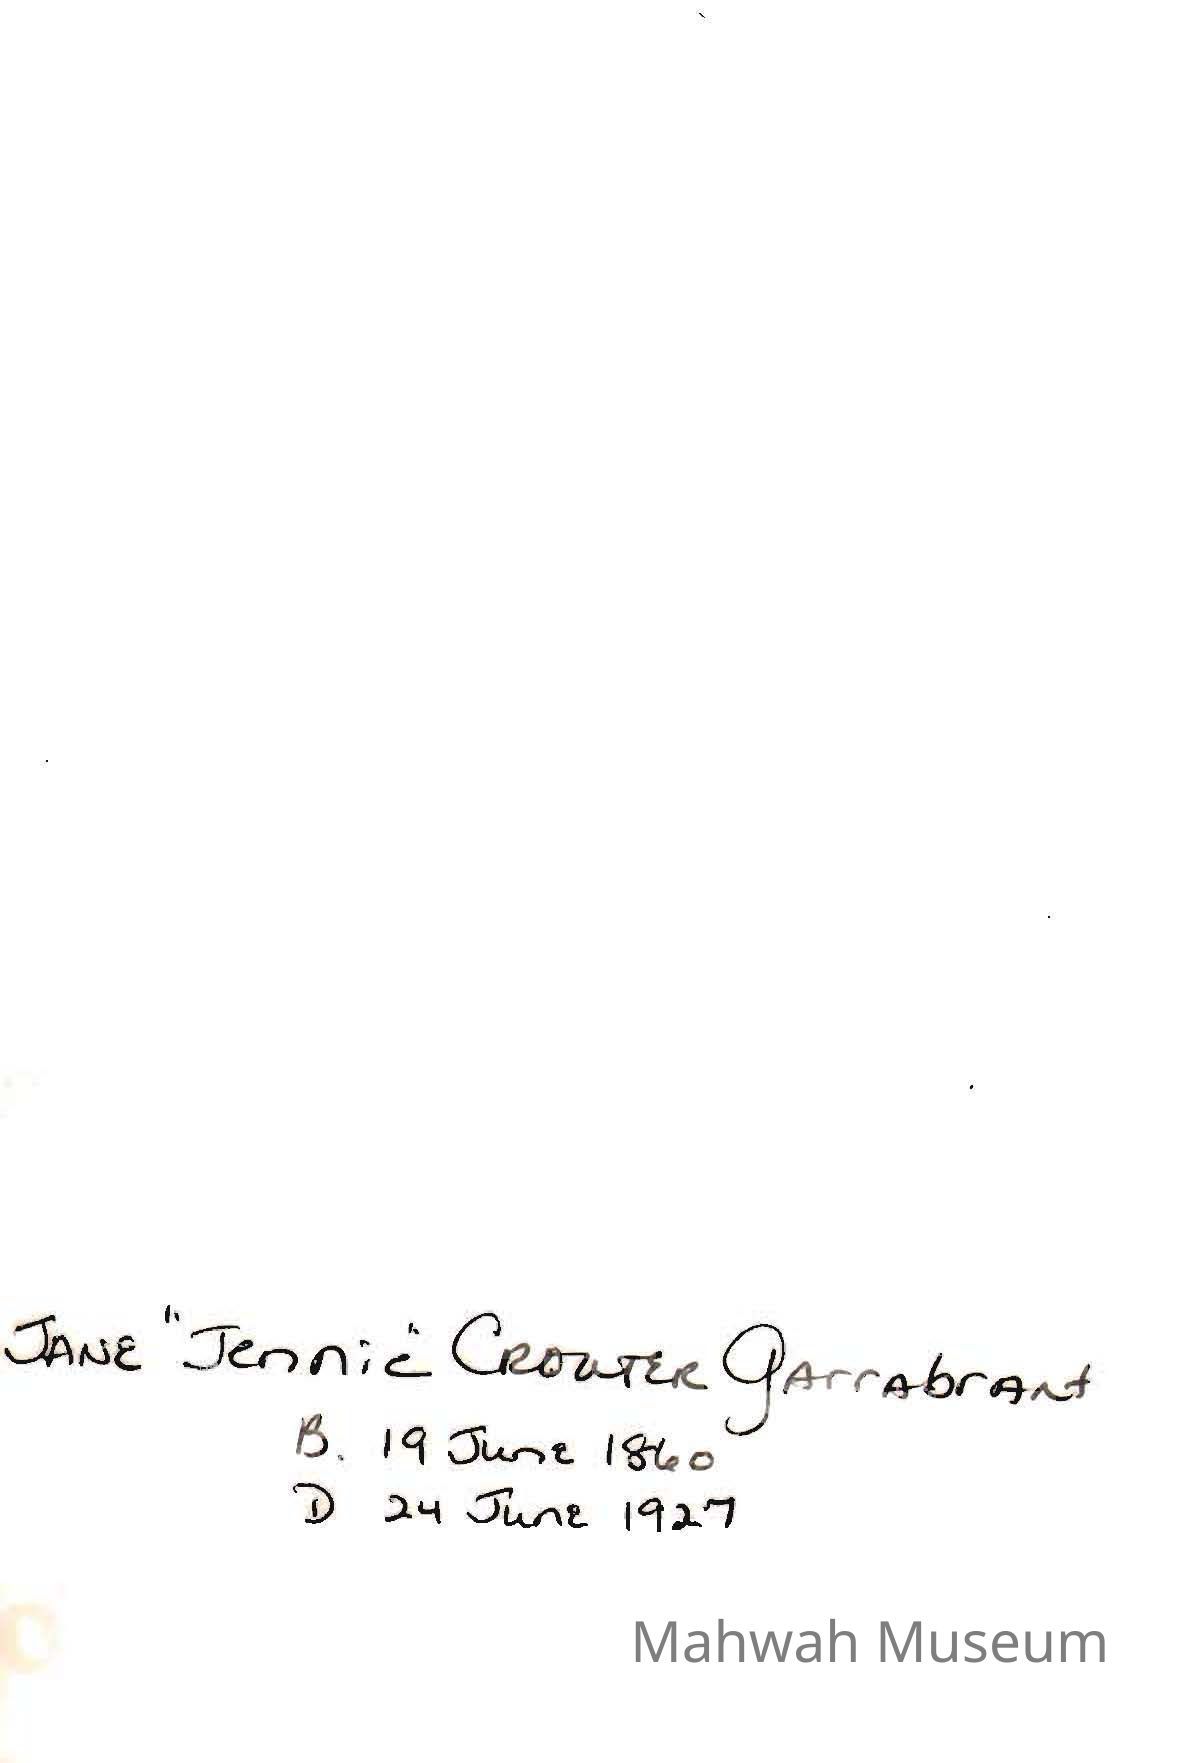 JANE "Jennie" CROUTER GArrAbrAnt
B. 19 June 1860
D 24 June 1927
Mahwah Museum